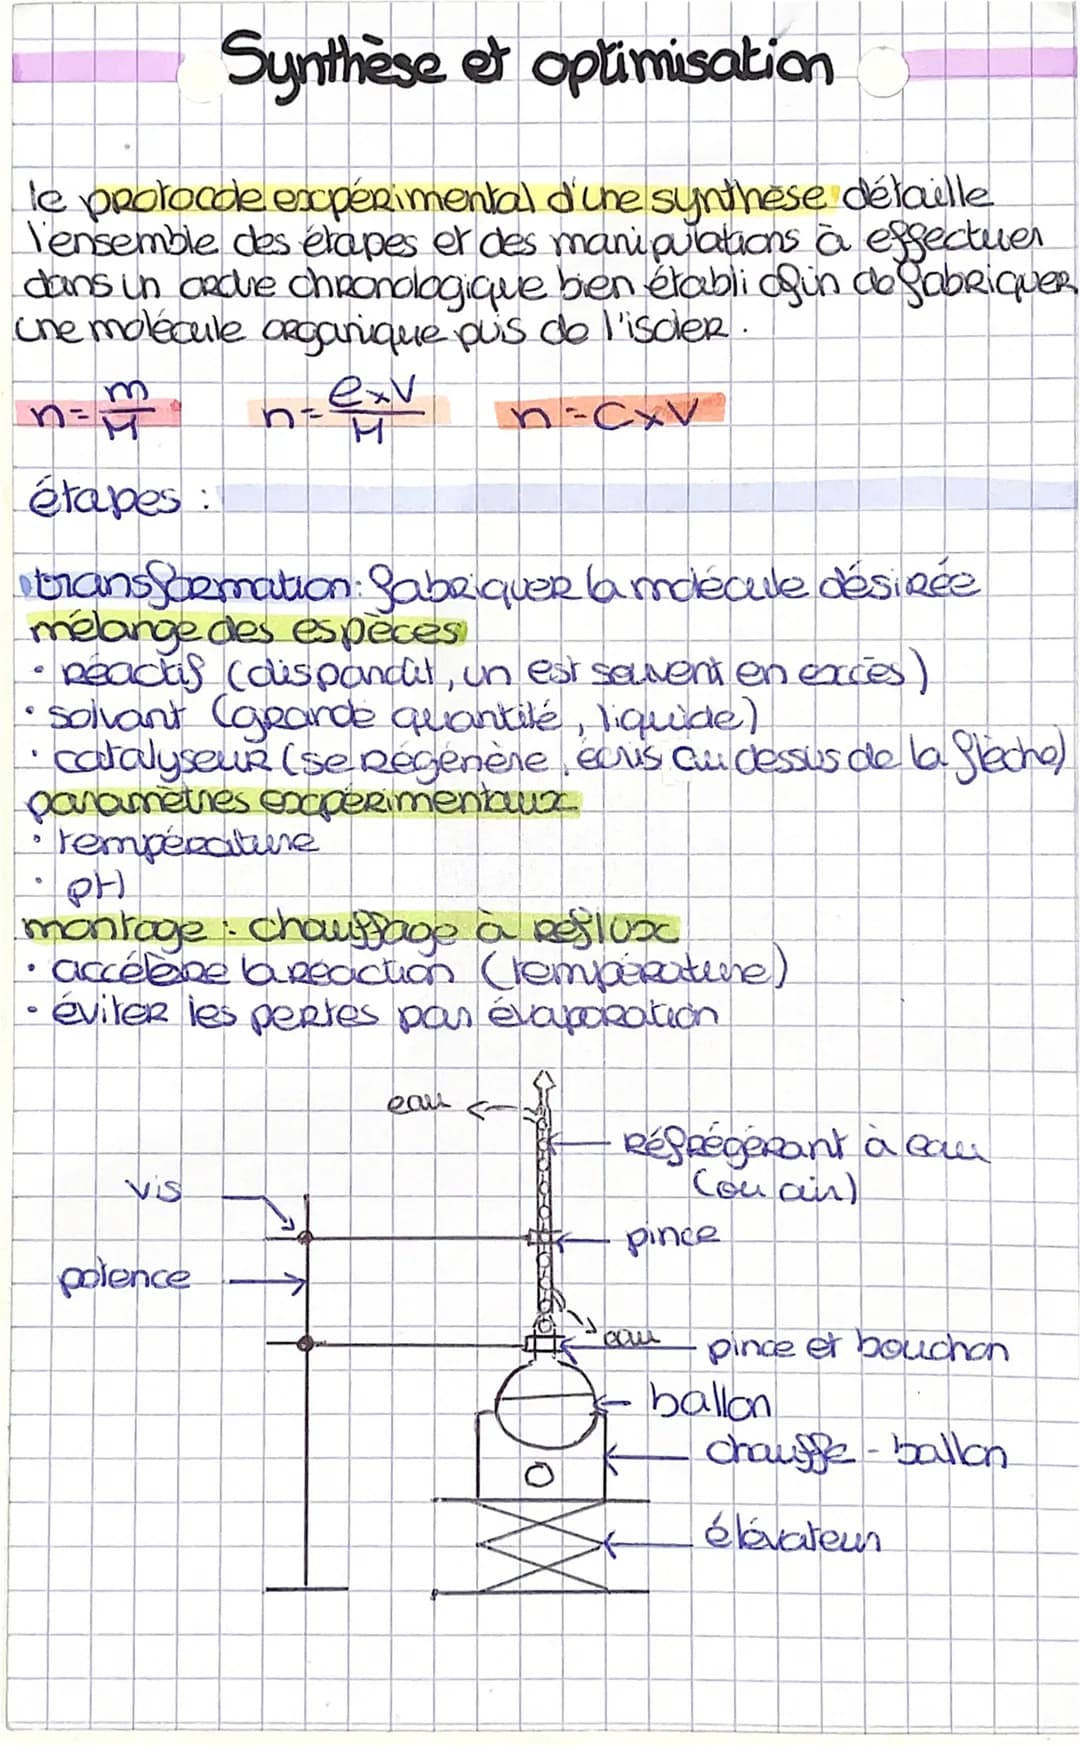 Synthèse et optimisation
le protocole expérimental d'une synthèse détaille
l'ensemble des étapes et des manipulations à effectuer
dans un ordre chronologique bien établi afin de fabriquer
une molécule organique puis de l'isoler.
n = m/M   n = ρ×V/M   n = C×V
étapes :
transformation : fabriquer la molécule désirée
mélange des espèces
• réactif (disparaît, un est souvent en excès)
• solvant (grande quantité, liquide)
• catalyseur (se régénère, écris au dessus de la flèche)
paramètres expérimentaux
• température
• pH
montage : chauffage à reflux
• accélère la réaction (température)
• éviter les pertes par évaporation
eau
réfrégérant à eau
(ou air)
vis
pince
potence
eau
pince et bouchon
ballon
chauffe-ballon
élévateur